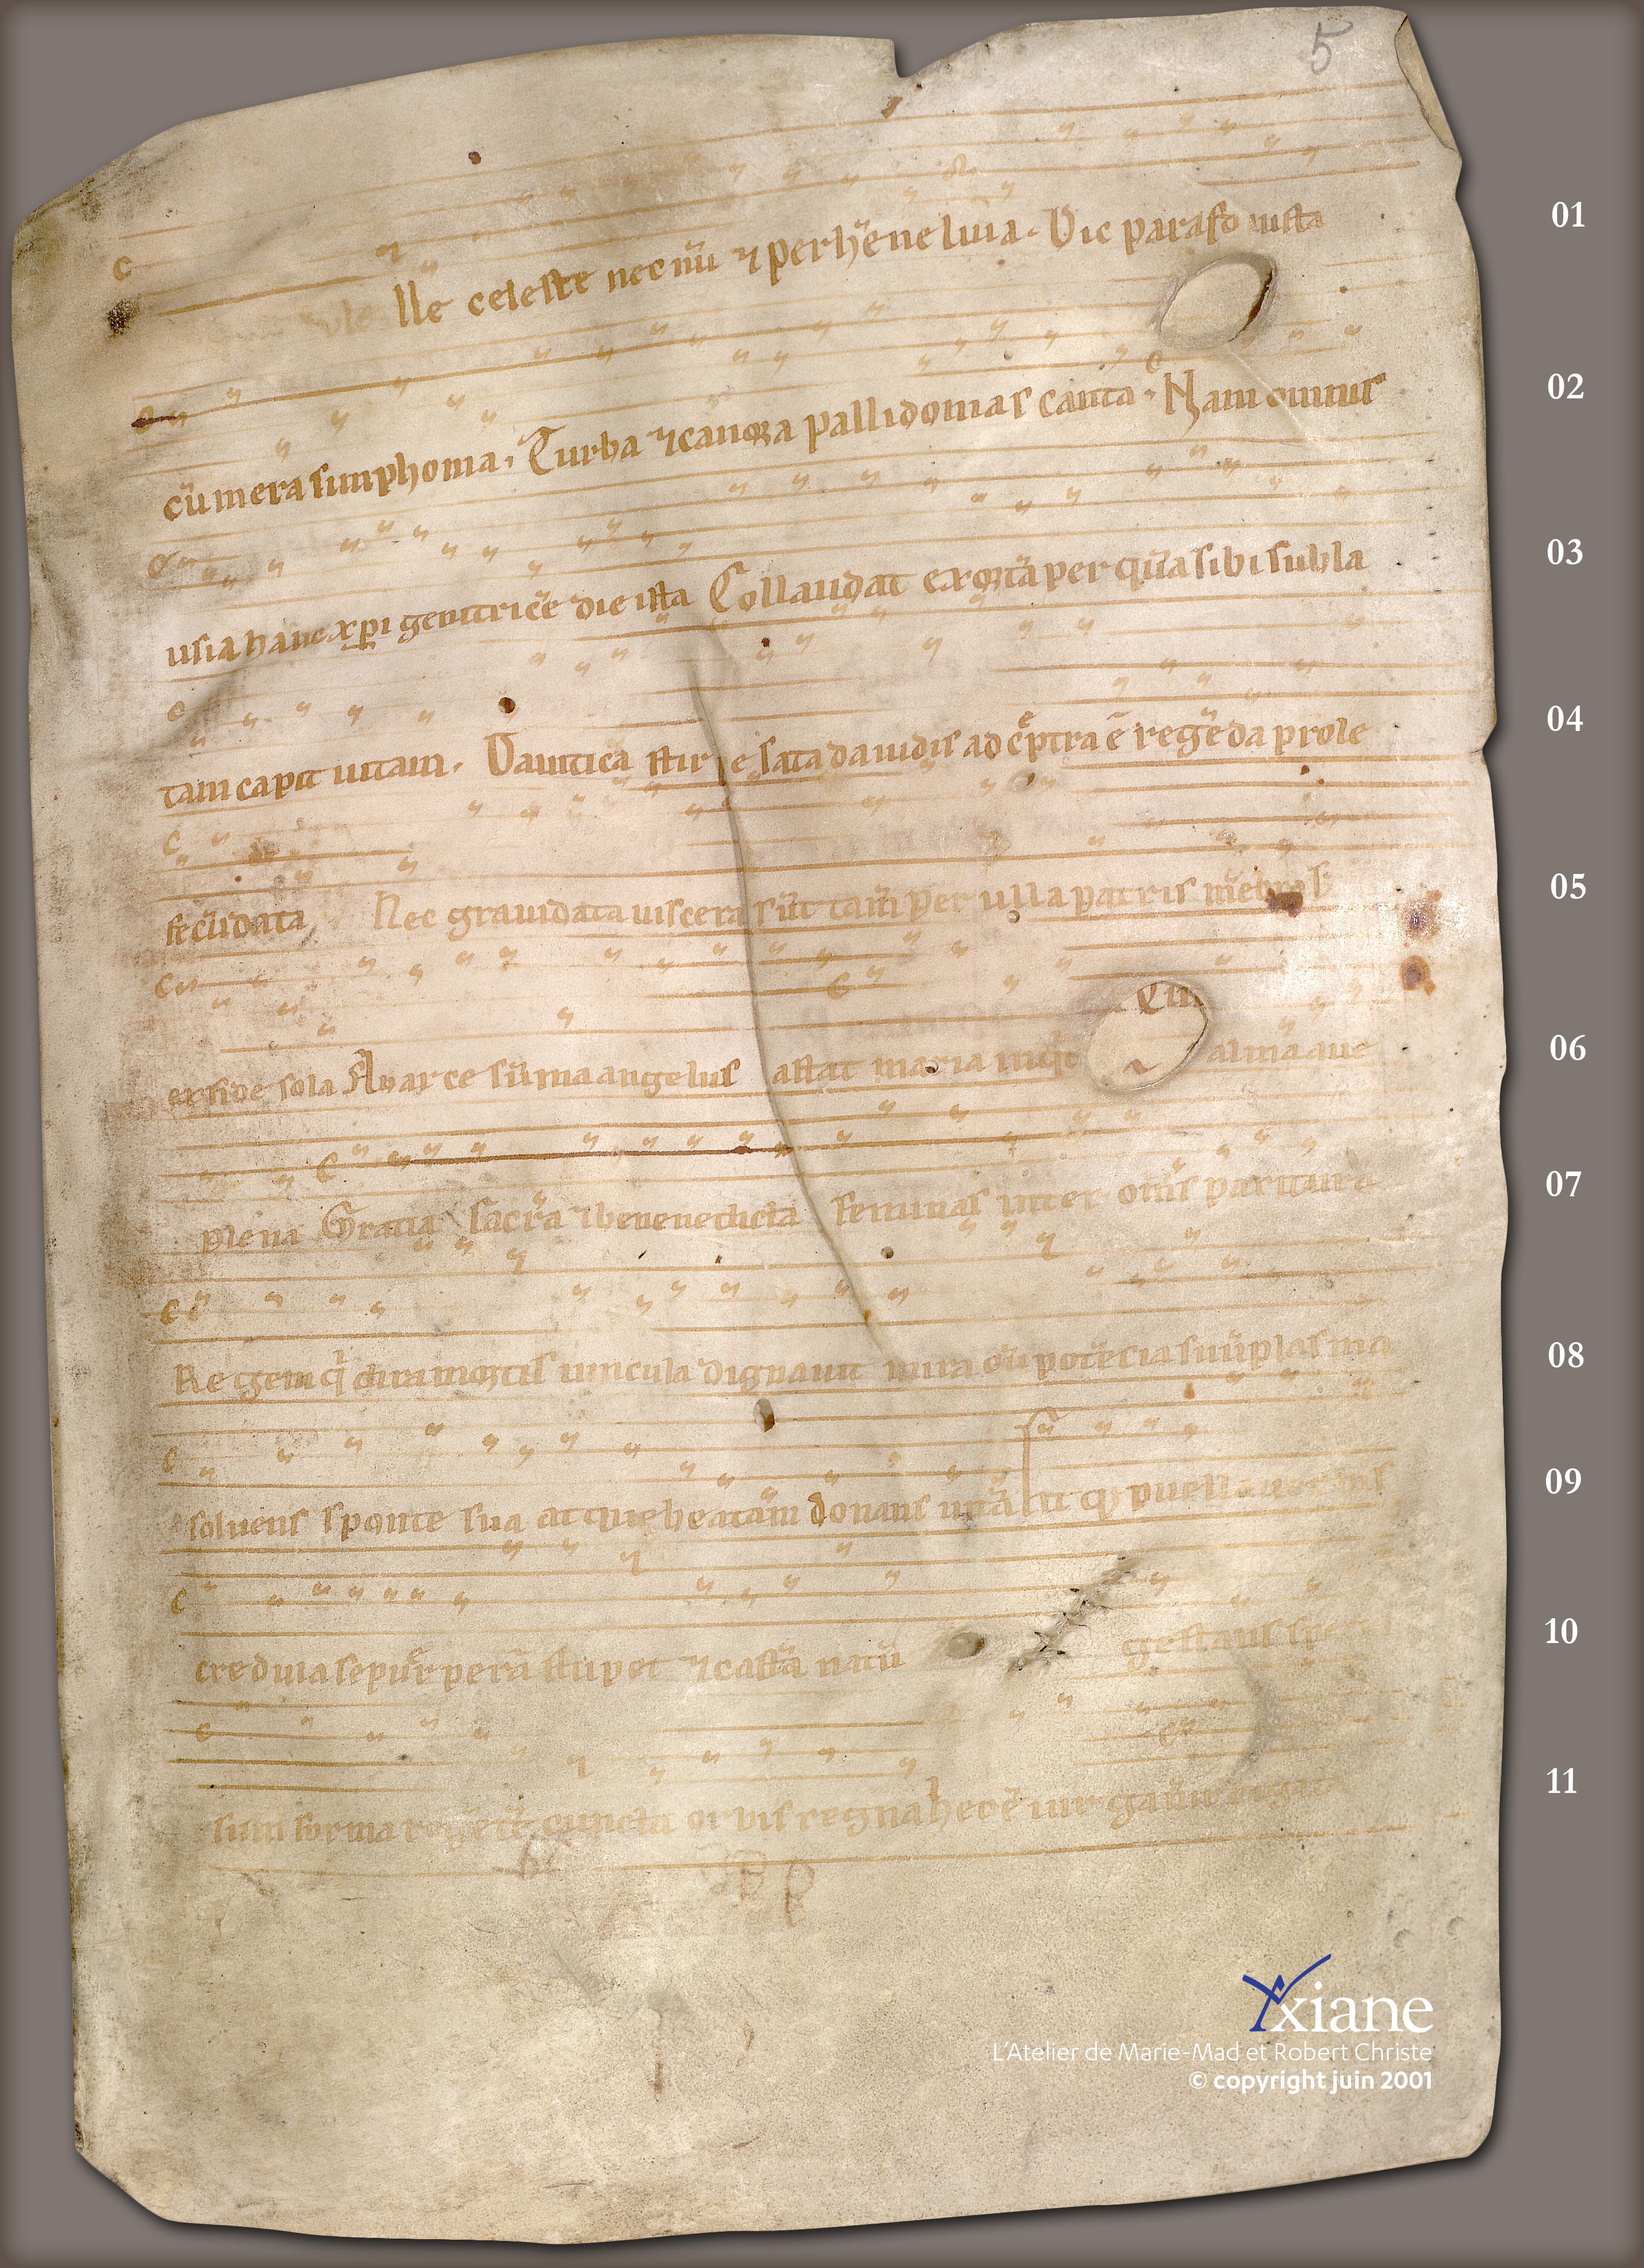 5
lle celeste necnū ⁊ perhēne luia. Dic parafo iusta
01
cū mera simphonia. Turba ⁊ canora pallidomas canta. Nam omnis
02
usia hanc xp̄i genitricē die ista Collaudat exortā per quā sibi subla
03
tam capit uitam. Dauitica stirpe sata dauidis ad sceptra ē regēda prole
04
fecūdata Nec grauidata uiscera sūt tam̄ per ulla patris mēbra s;
05
ex fide sola Ab arce sūma angelus astat maria inqt alma aue
06
plena Gratia sacra ⁊ benenedicta feminas inter om̄s paritura
07
Regem q̇ dira mortis uincula dignauit mira cū potēcia suū plasma
08
soluens sponte sua atque beatam donans uitā puella uerbis
09
credula se puerperā stupet ⁊ castā natū gestans
10
sum forma regētē cuncta orbis regna
11
Yxiane
L'Atelier de Marie-Mad et Robert Christe
© copyright juin 2001